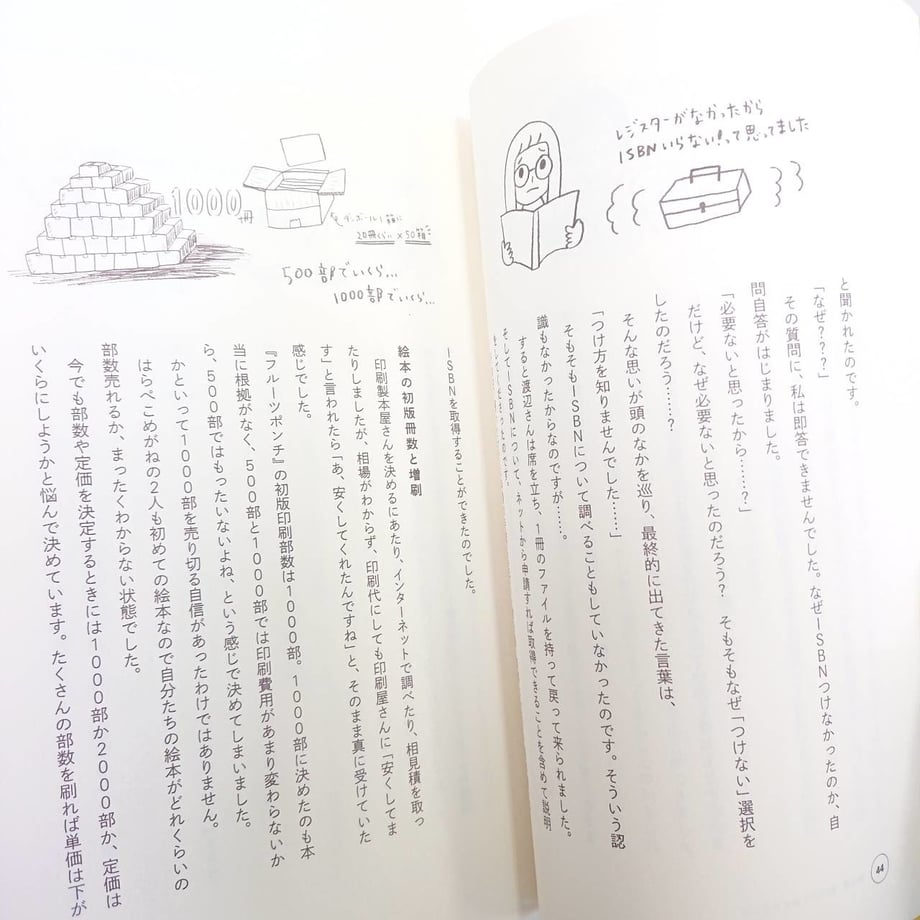 レジスターがなかったから
ISBNいらない!って思ってました
と聞かれたのです。
「なぜ???」
その質問に、私は即答できませんでした。なぜISBNつけなかったのか、自
問自答がはじまりました。
「必要ないと思ったから……?」
だけど、なぜ必要ないと思ったのだろう? そもそもなぜ「つけない」選択を
したのだろう……?
そんな思いが頭のなかを巡り、最終的に出てきた言葉は、
「つけ方を知りませんでした……」
そもそもISBNについて調べることもしていなかったのです。そういう認
識もなかったからなのですが……。
すると渡辺さんは席を立ち、1冊のファイルを持って戻って来られました。
そしてISBNについて、ネットから申請すれば取得できることを含めて説明
44
1000冊
ダンボール1箱に
20冊くらい×50箱
500部でいくら…
1000部でいくら…
ISBNを取得することができたのでした。
絵本の初版冊数と増刷
印刷製本屋さんを決めるにあたり、インターネットで調べたり、相見積を取っ
たりしましたが、相場がわからず、印刷代にしても印刷屋さんに「安くしてま
す」と言われたら「あ、安くしてくれたんですね」と、そのまま真に受けていた
感じでした。
『フルーツポンチ』の初版印刷部数は1000部。1000部に決めたのも本
当に根拠がなく、500部と1000部では印刷費用があまり変わらないか
ら、500部ではもったいないよね、という感じで決めてしまいました。
かといって1000部を売り切る自信があったわけではありません。
はらぺこめがねの2人も初めての絵本なので自分たちの絵本がどれくらいの
部数売れるか、まったくわからない状態でした。
今でも部数や定価を決定するときには1000部か2000部か、定価は
いくらにしようかと悩んで決めています。たくさんの部数を刷れば単価は下が